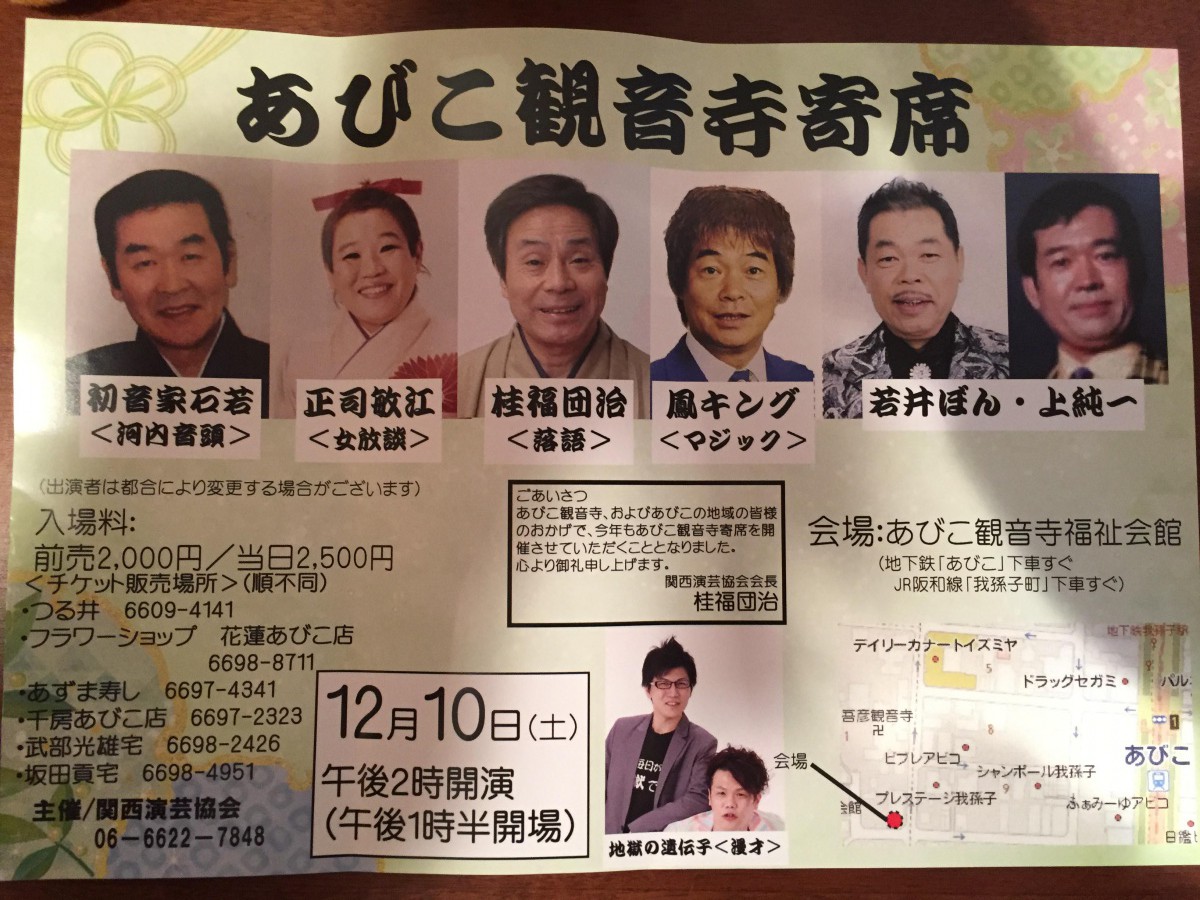 あびこ観音寺寄席
初音家石若
<河内音頭>
正司敏江
<女放談>
桂福団治
<落語>
鳳キング
<マジック>
若井ぼん・上純一
(出演者は都合により変更する場合がございます)
入場料:
前売2,000円/当日2,500円
<チケット販売場所>(順不同)
・つる井 6609-4141
・フラワーショップ 花蓮あびこ店
6698-8711
・あずま寿し 6697-4341
・千房あびこ店 6697-2323
・武部光雄宅 6698-2426
・坂田貢宅 6698-4951
主催/関西演芸協会
06-6622-7848
12月10日(土)
午後2時開演
(午後1時半開場)
ごあいさつ
あびこ観音寺、およびあびこの地域の皆様
のおかげで、今年もあびこ観音寺寄席を開
催させていただくこととなりました。
心より御礼申し上げます。
関西演芸協会会長
桂福団治
地獄の遺伝子<漫才>
会場:あびこ観音寺福祉会館
(地下鉄「あびこ」下車すぐ
JR阪和線「我孫子町」下車すぐ)
地下鉄我孫子駅
デイリーカナートイズミヤ
5
ドラッグセガミ
パル
吾彦観音寺
卍
1
8
1
あびこ
ビブレアビコ
シャンボール我孫子
9
会場
プレステージ我孫子
ふぁみーゆアビコ
会館
日鑑